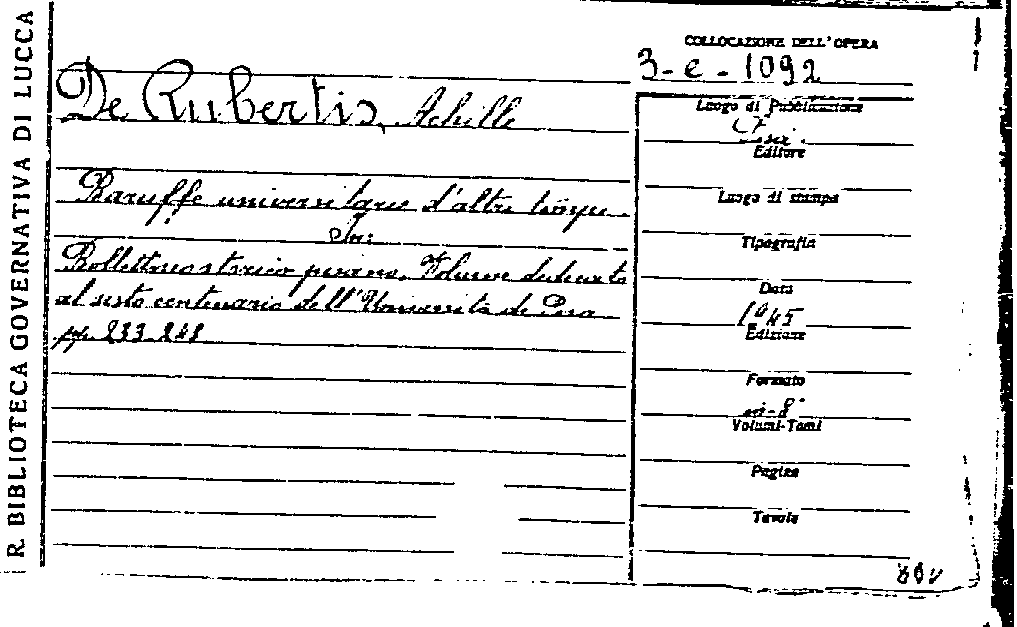 R. BIBLIOTECA GOVERNATIVA DI LUCCA
De Rubertis, Achille
Baruffe universitarie d'altri tempi.
In:
Bollettino storico pisano. Volume dedicato
al sesto centenario dell'Università di Pisa
pp. 233-248
COLLOCAZIONE DELL'OPERA
3-e-1092
Luogo di Pubblicazione
Editore
Luogo di stampa
Tipografia
Data
1945
Edizione
Formato
in-8°
Volumi-Tomi
Pagine
Tavole